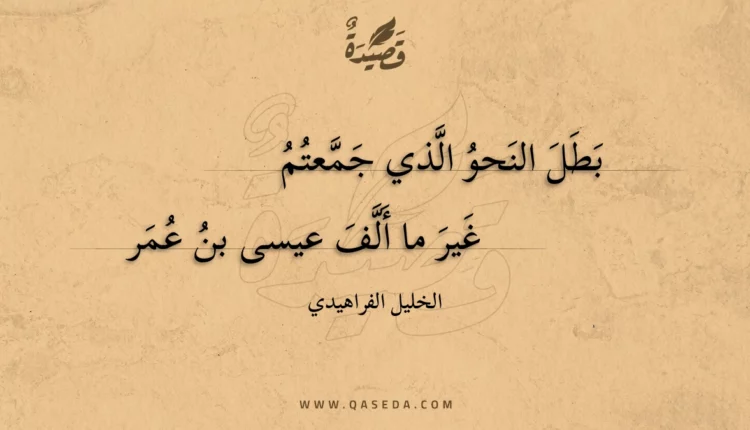 قَصِيْدَةٌ
بَطَلَ النَحوُ الَّذي جَمَّعتُمُ
غَيرَ ما أَلَّفَ عيسى بنُ عُمَر
الخليل الفراهيدي
WWW.QASEDA.COM